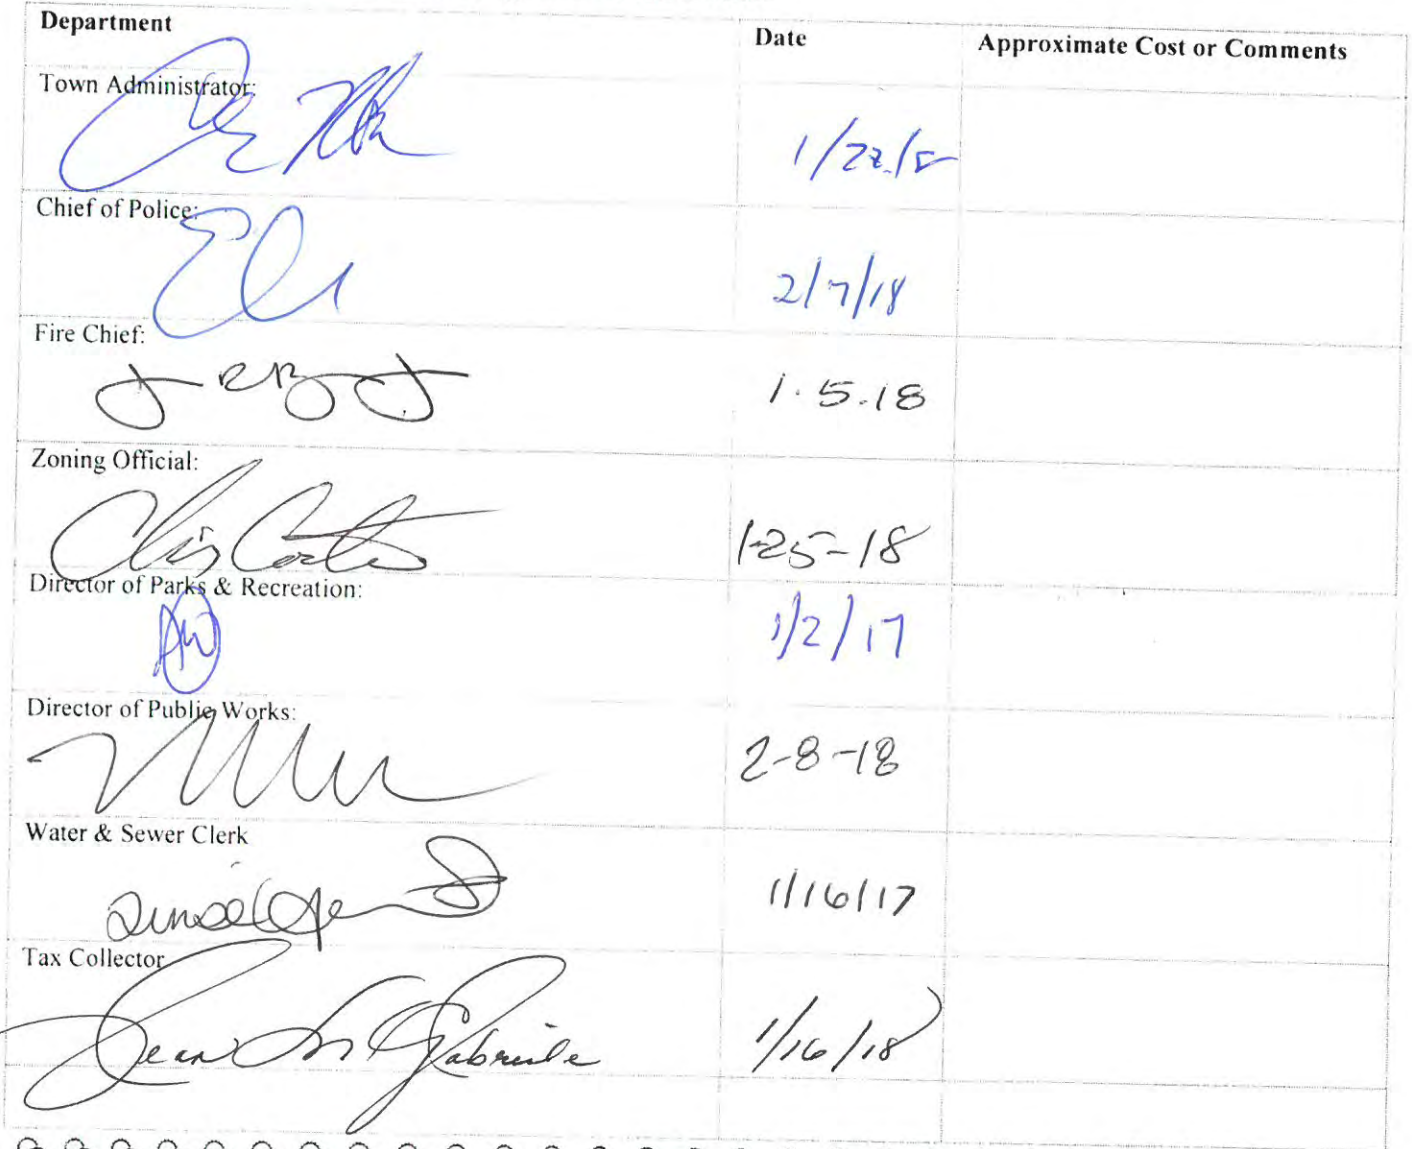 Department Date Approximate Cost or Comments
Town Administrator:
Chief of Police:
2/7/18
Fire Chief:
1.5.18
Zoning Official:
1-25-18
Director of Parks & Recreation:
1/2/17
Director of Public Works:
2-8-18
Water & Sewer Clerk
1/16/17
Tax Collector
Jean M Gabriele 1/16/18